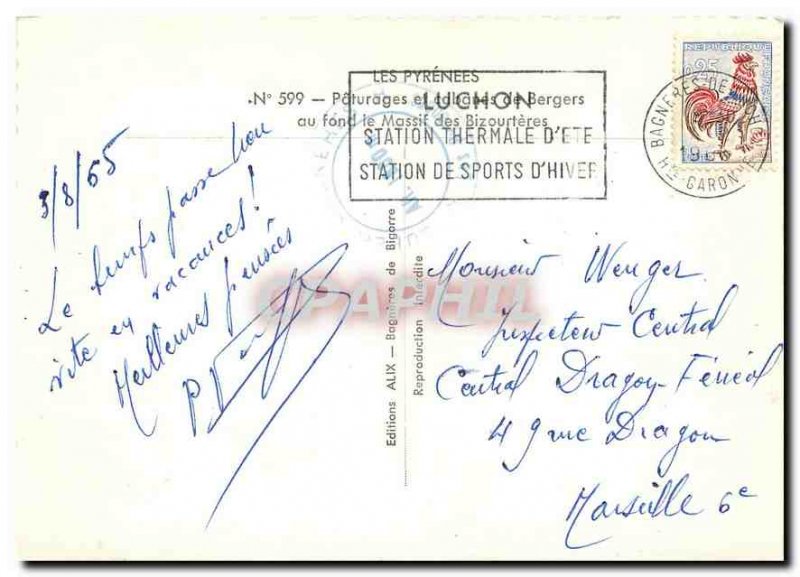 LES PYRÉNÉES
N° 599 — Pâturages et cabanes de Bergers
au fond le Massif des Bizourtères
LUCHON
STATION THERMALE D'ETE
STATION DE SPORTS D'HIVER
BAGNERES-DE
Hte-GARONNE
0,25
REPUBLIQUE FRANCAISE
3/8/65
Le temps passe
vite en vacances!
Meilleures pensées
P.
Editions ALIX — Bagnères de Bigorre
Reproduction Interdite
CPAPHIL
Monsieur Wenger
Inspecteur Central
Central Dragon-Ferréol
49 rue Dragon
Marseille 6e